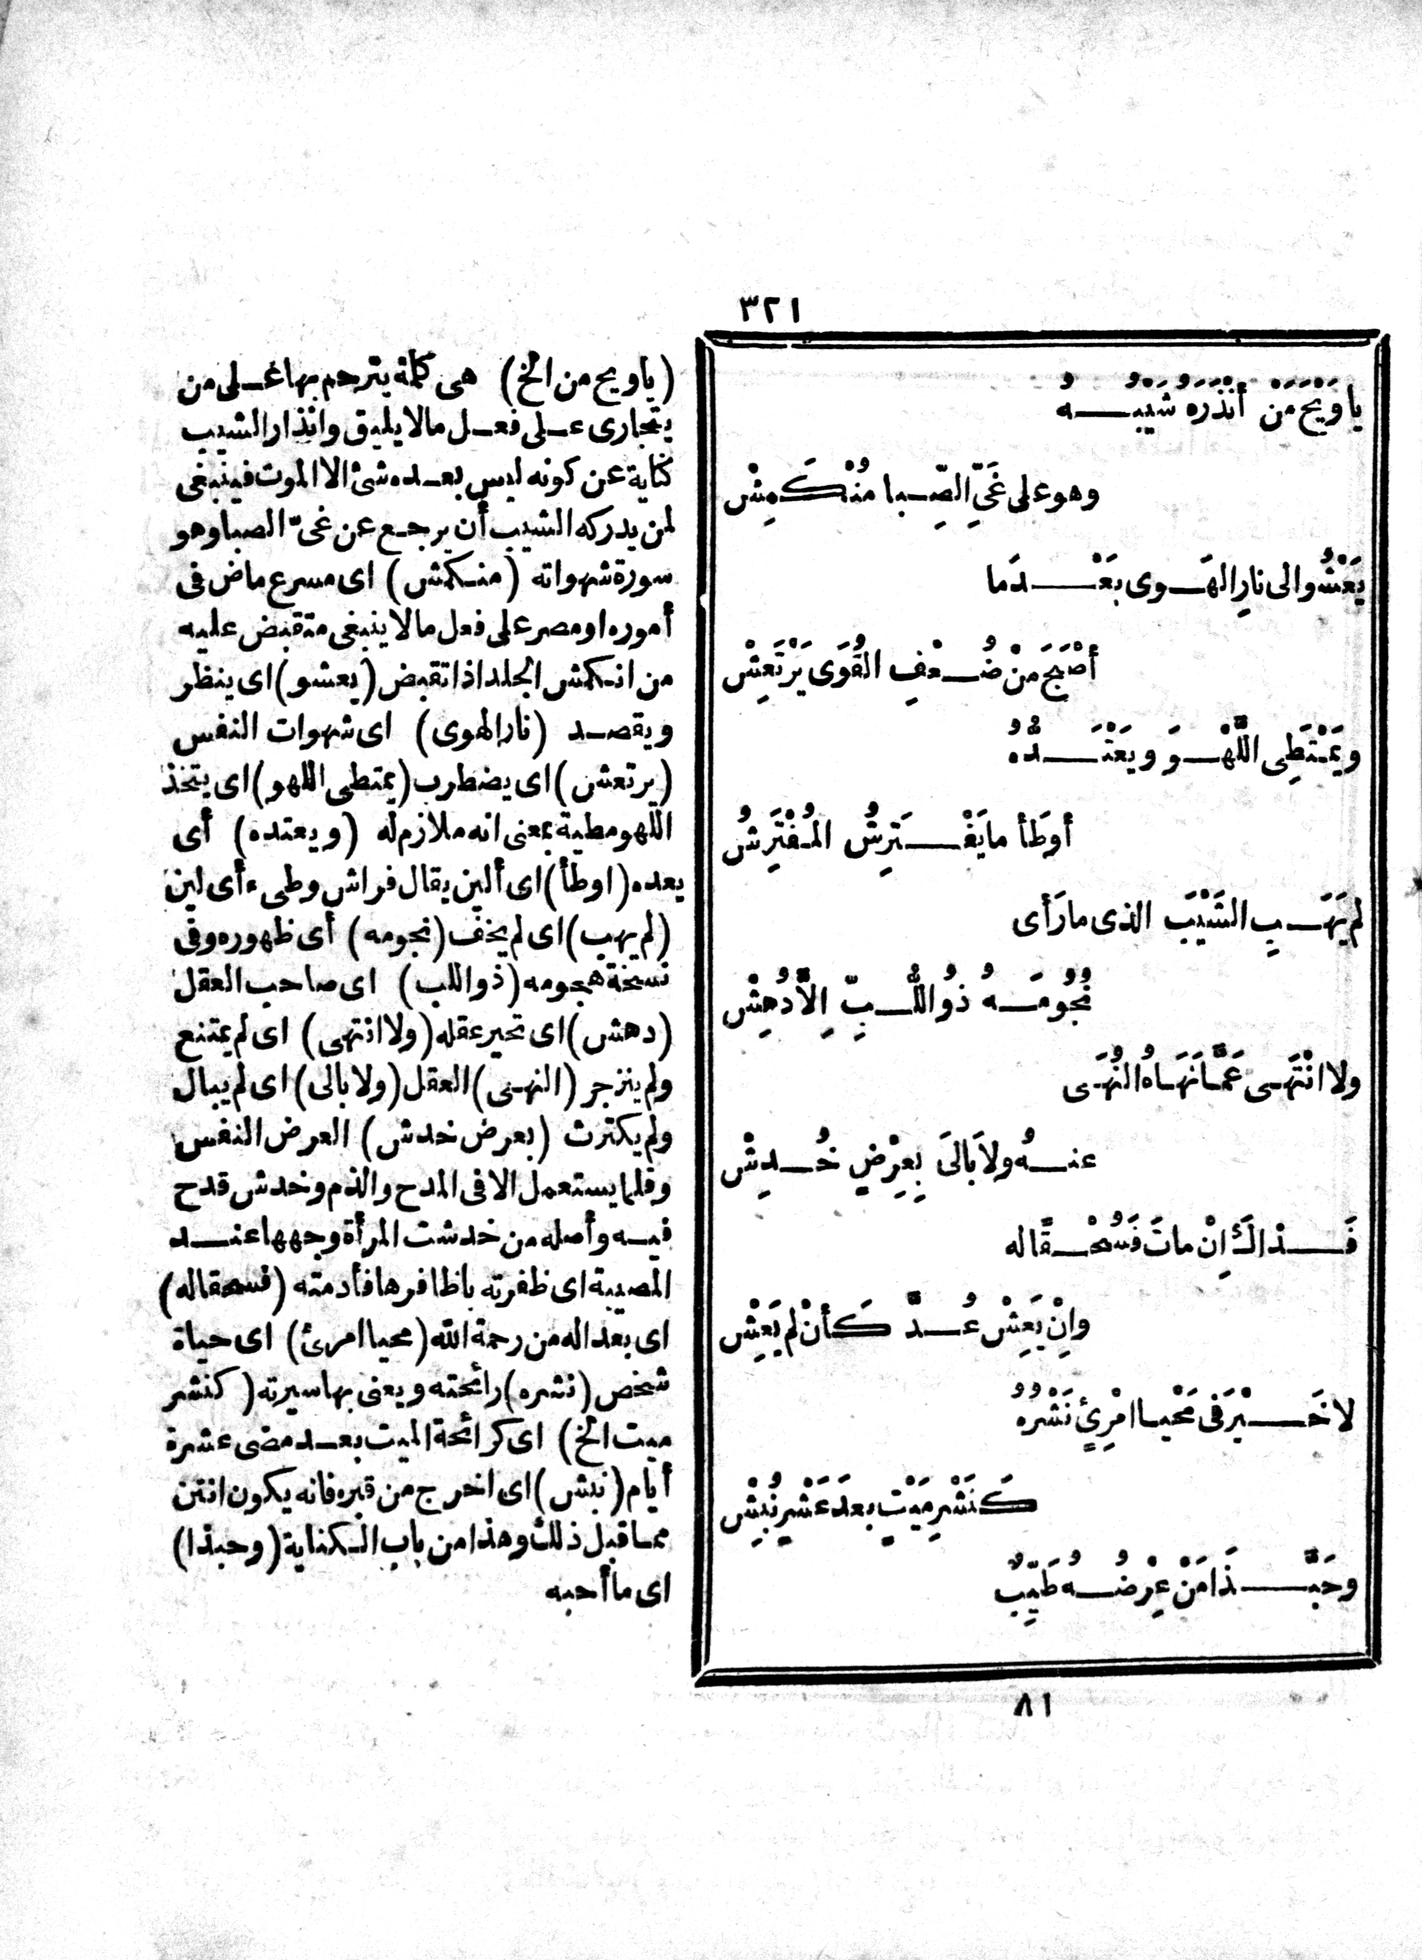 ٣٢١
يا وَيْحَ مَنْ أَنْذَرَهُ شَيْبُــهُ
وهو على غَيِّ الصِّبا مُنْكَمِشْ
يَعْشُو الى نارِ الهَوى بَعْدَما
أصْبَحَ مَنْ ضُعْفِ القُوَى يَرْتَعِشْ
ويَمْتَطِى اللَّهْوَ ويَعْتَدُّهُ
أوطَأ ما يَفْتَرِشُ المُفْتَرِشُ
لم يَهَبِ الشَيْبَ الذى مارَأى
نُجُومَهُ ذُو اللُّبِّ اِلَّا دُهِشْ
ولا انْتَهَى عَمَّا نَهَاهُ النُهَى
عنهُ ولا بَالىَ بِعِرْضٍ خُدِشْ
فَذاكَ اِنْ ماتَ فَسُحْقًا له
واِنْ يَعِشْ عُدَّ كَأنْ لم يَعِشْ
لا خَيْرَ فى مَحْيا امْرِئٍ نَشْرُهُ
كَنَشْرِ مَيْتٍ بعدَ عَشْرٍ نُبِشْ
وحَبَّذَا مَنْ عِرْضُهُ طَيِّبٌ
٨١
(يا ويح من الخ) هى كلمة يترحم بها على من
يتجارى على فعل مالا يليق وانذار الشيب
كناية عن كونه ليس بعده شئ الا الموت فينبغى
لمن يدركه الشيب أن يرجع عن غىّ الصبا وهو
سورة شهواته (منكمش) اى مسرع ماض فى
أموره او مصر على فعل مالا ينبغى متقبض عليه
من انكمش الجلد اذا تقبض (يعشو) اى ينظر
ويقصد (نار الهوى) اى شهوات النفس
(يرتعش) اى يضطرب (يمتطى اللهو) اى يتخذ
اللهو مطية بمعنى انه ملازم له (ويعتده) أى
يعده (اوطأ) اى ألين يقال فراش وطىء أى لين
(لم يهب) اى لم يخف (نجومه) أى ظهوره وفى
نسخة هجومه (ذو اللب) اى صاحب العقل
(دهش) اى تحير عقله (ولا انتهى) اى لم يمتنع
ولم ينزجر (النهى) العقل (ولا بالى) اى لم يبال
ولم يكترث (بعرض خدش) العرض النفس
وقلما يستعمل الا فى المدح والذم وخدش قدح
فيه وأصله من خدشت المرأة وجهها عند
المصيبة اى ظفرته باظافرها فأدمته (فسحقا له)
اى بعدا له من رحمة الله (محيا امرئ) اى حياة
شخص (نشره) رائحته ويعنى بها سيرته (كنشر
ميت الخ) اى كرائحة الميت بعد مضى عشرة
أيام (نبش) اى اخرج من قبره فانه يكون انتن
مما قبل ذلك وهذا من باب الكناية (وحبذا)
اى ما أحبه